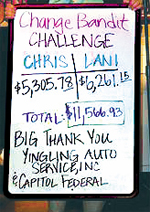 Change Bandit
CHALLENGE
CHRIS LANI
$5,305.78 $6,261.15
TOTAL: $11,566.93
BIG THANK YOU
YINGLING AUTO
SERVICE, INC
& CAPITOL FEDERAL